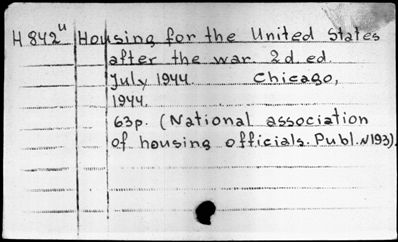 H 842u Housing for the United States
after the war. 2d. ed.
July 1944. Chicago,
1944.
63p. (National association
of housing officials. Publ. N193).